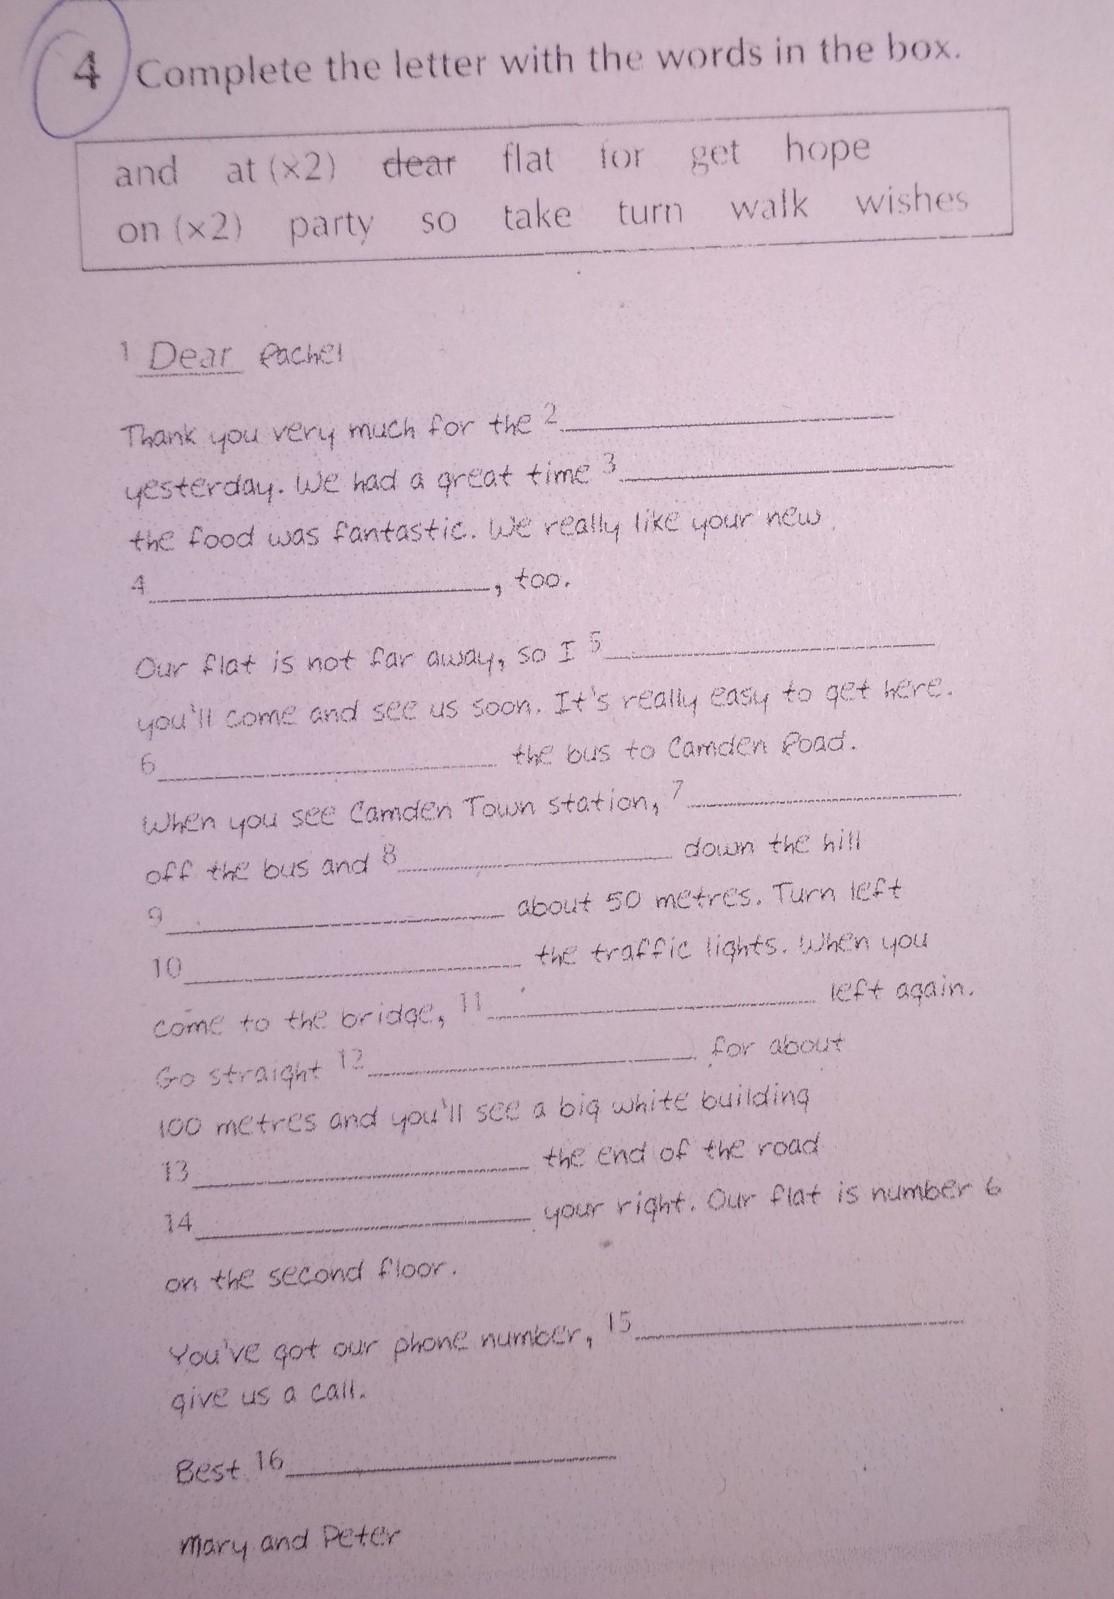 4 Complete the letter with the words in the box.
and at (×2) dear flat for get hope
on (×2) party so take turn walk wishes
1 Dear Rachel
Thank you very much for the 2
yesterday. We had a great time 3
the food was fantastic. We really like your new
4 , too.
Our flat is not far away, so I 5
you'll come and see us soon. It's really easy to get here.
6 the bus to Camden Road.
When you see Camden Town station, 7
off the bus and 8 down the hill
9 about 50 metres. Turn left
10 the traffic lights. When you
come to the bridge, 11 left again.
Go straight 12 for about
100 metres and you'll see a big white building
13 the end of the road
14 your right. Our flat is number 6
on the second floor.
You've got our phone number, 15
give us a call.
Best 16
Mary and Peter